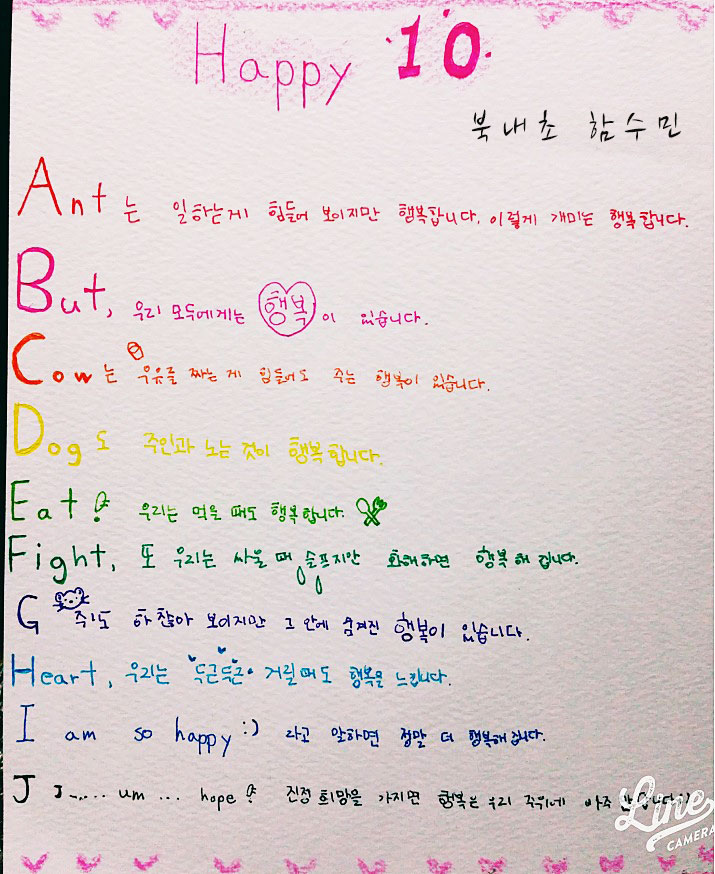 Happy 10
북내초 함수민
Ant는 일하는게 힘들어 보이지만 행복합니다. 이렇게 개미는 행복합니다.
But, 우리 모두에게는 행복이 있습니다.
Cow는 우유를 짜는 게 힘들어도 주는 행복이 있습니다.
Dog도 주인과 노는 것이 행복합니다.
Eat? 우리는 먹을 때도 행복합니다.
Fight, 또 우리는 싸울 때 슬프지만 화해하면 행복해 집니다.
G 쥐도 하찮아 보이지만 그 안에 숨겨진 행복이 있습니다.
Heart, 우리는 두근두근 거릴때도 행복을 느낍니다.
I am so happy :) 라고 말하면 정말 더 행복해집니다.
J J-..... um ... hope? 진정 희망을 가지면 행복은 우리 주위에 아주
Line
CAMERA